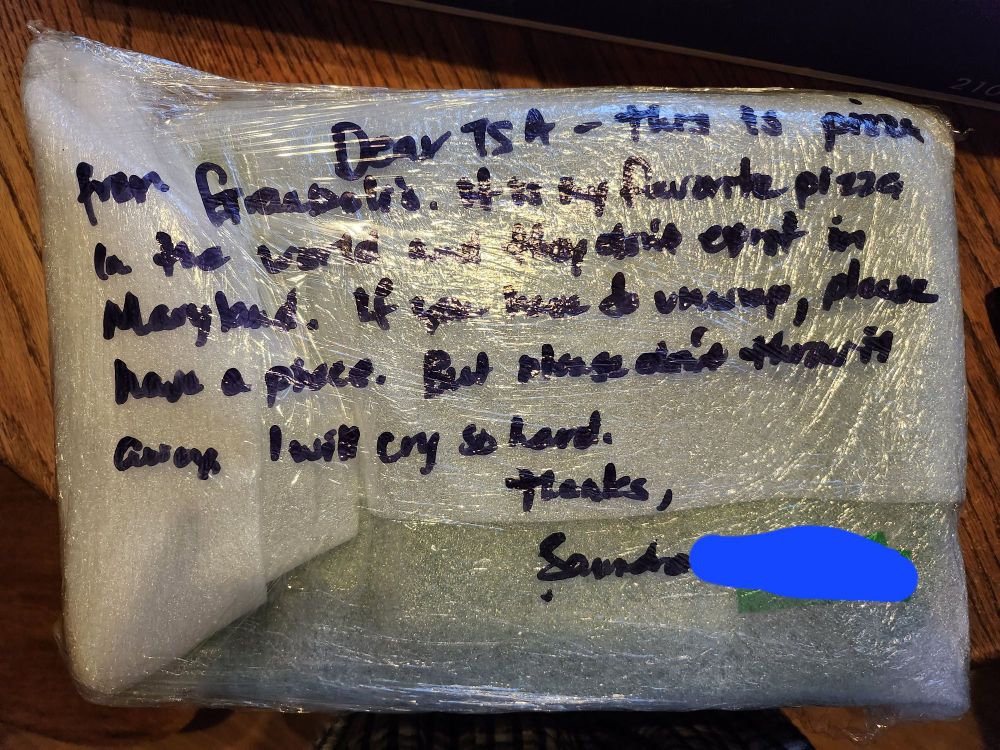 Dear TSA - this is pizza
from Grazianti's. It is my favorite pizza
in the world and they don't exist in
Maryland. If you have to unwrap, please
have a piece. But please don't throw it
away. I will cry so hard.
Thanks,
Saundra
210